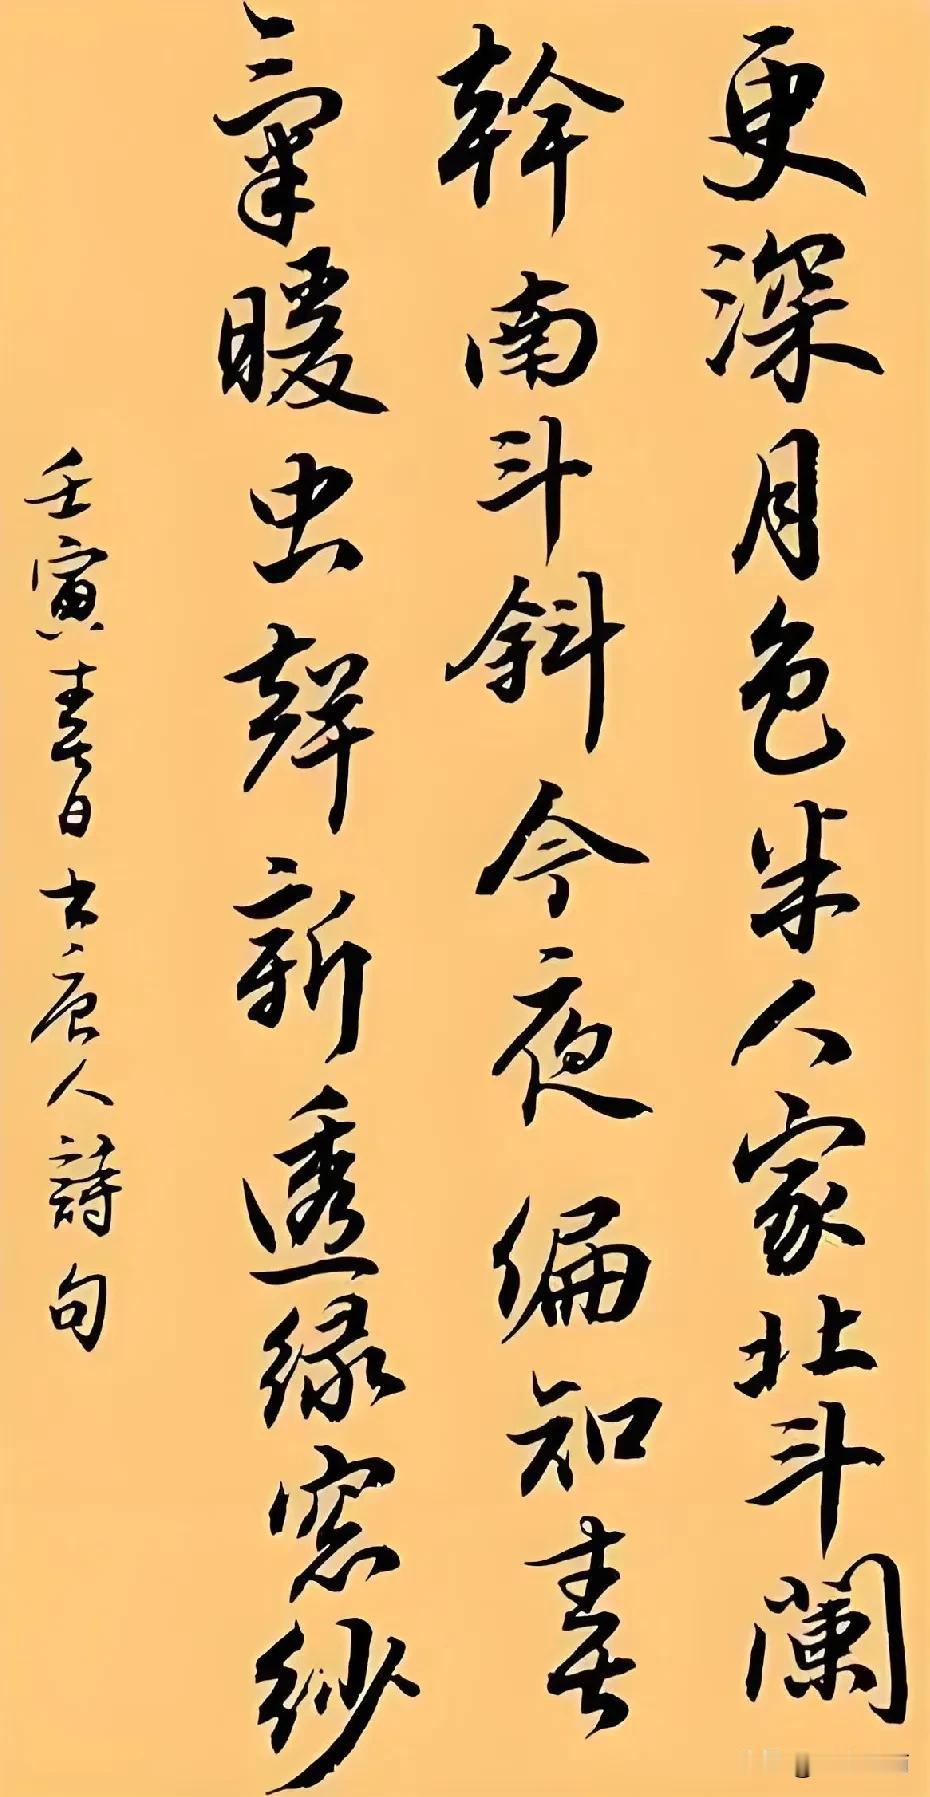 更深月色半人家北斗闌
幹南斗斜今夜偏知春
氣暖虫聲新透綠窗紗
壬寅春日古唐人詩句